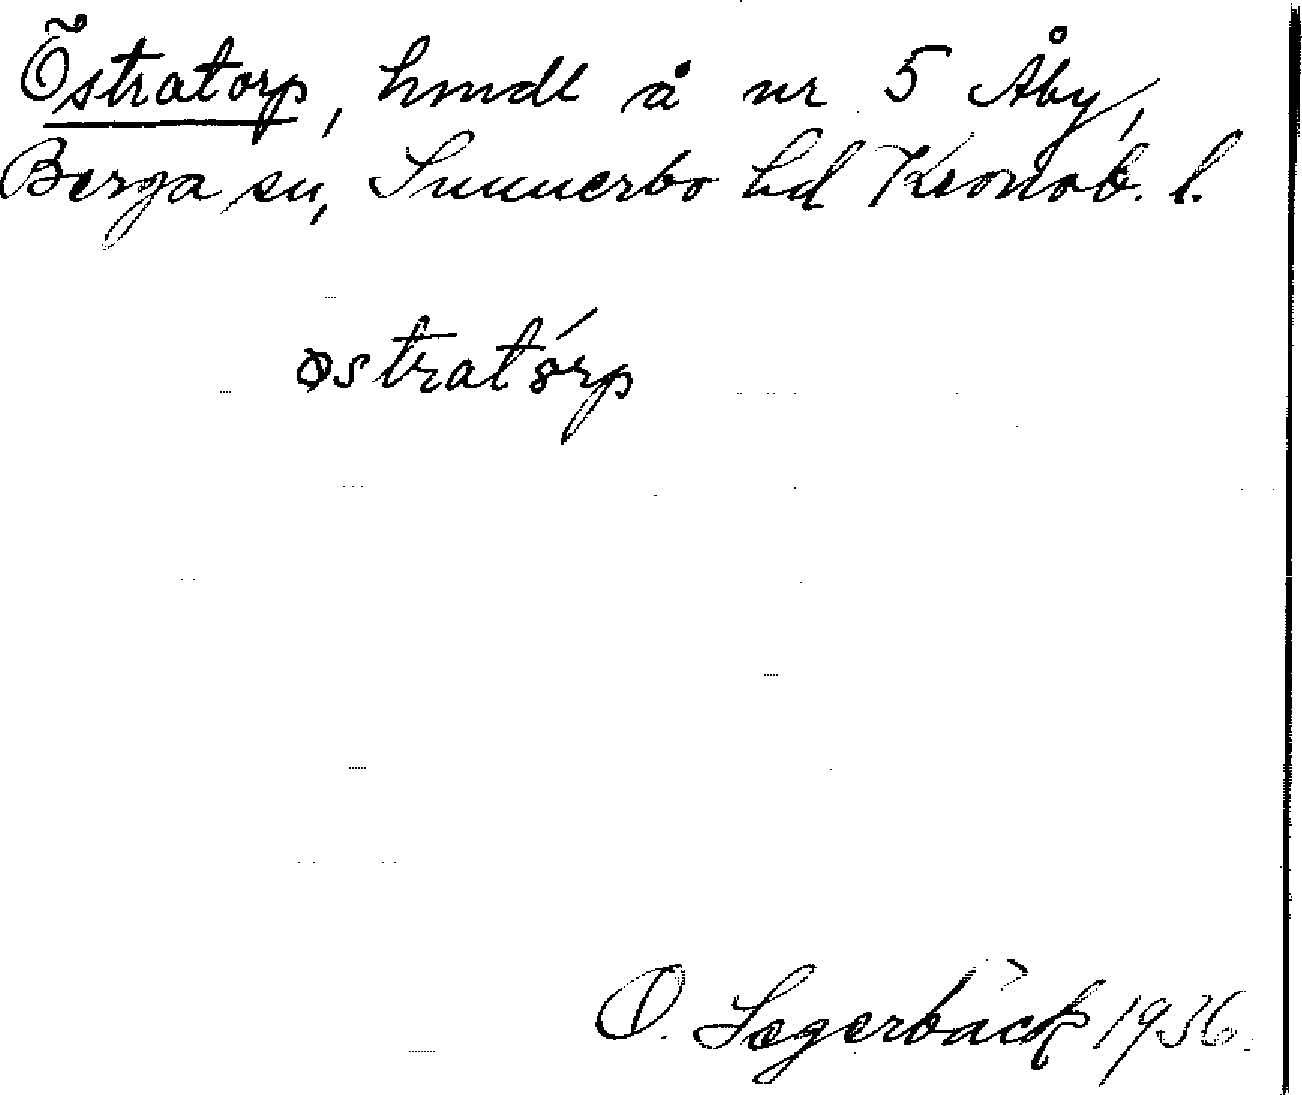 Östratorp, hmdl å nr 5 Åby,
Berga sn, Sunnerbo hd Kronob. l.
østratórp
O. Lagerbäck 1936.